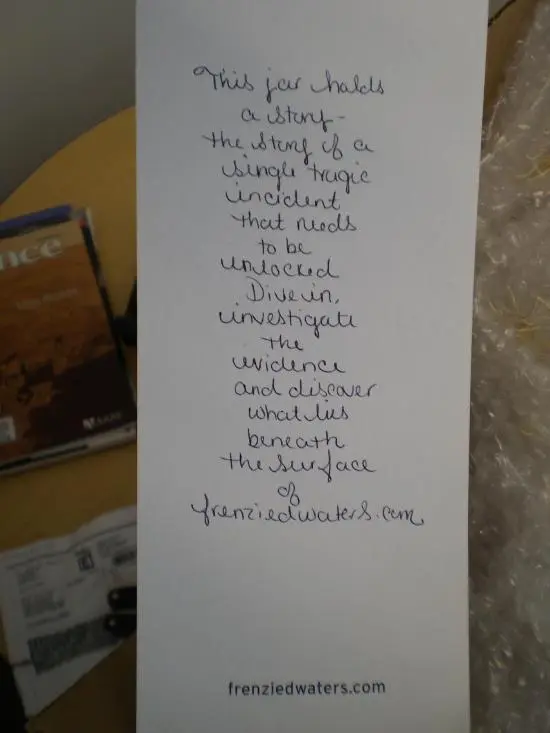 nce
This jar holds
a story-
the story of a
single tragic
incident
that needs
to be
unlocked
Dive in,
investigate
the
evidence
and discover
what lies
beneath
the surface
of
frenziedwaters.com
frenziedwaters.com